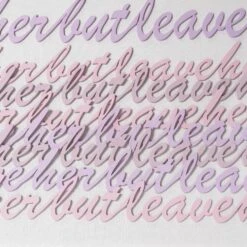 herbutleave
herbutleaveh
herbutleave
herbutleave
herbutleave
herbutleaver
herbutleaver